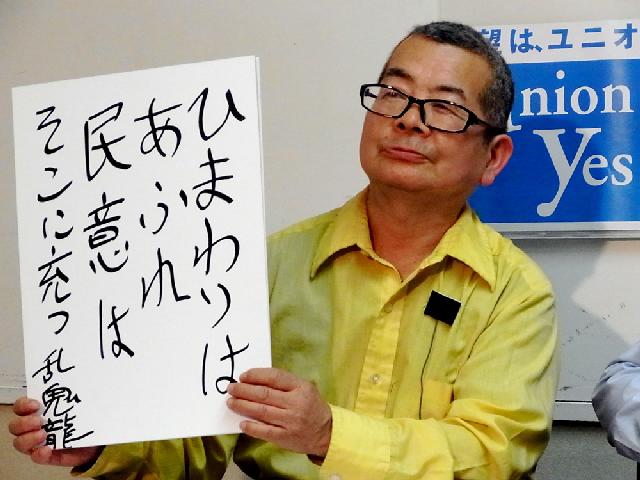 ひまわりは
あふれ
民意は
そこに充つ 乱鬼龍
望は、ユニオ
Union
Yes